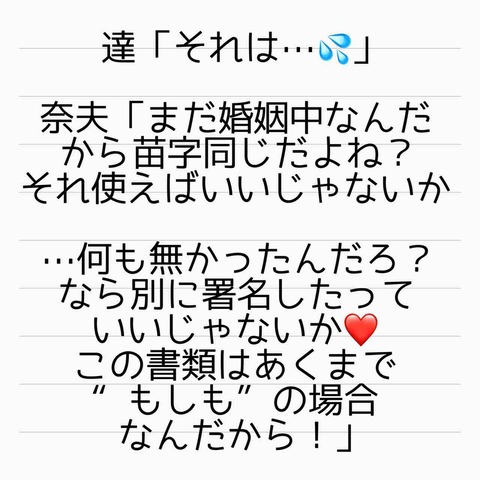 達「それは…💦」
奈夫「まだ婚姻中なんだ
から苗字同じだよね？
それ使えばいいじゃないか
…何も無かったんだろ？
なら別に署名したって
いいじゃないか❤️
この書類はあくまで
”もしも”の場合
なんだから！」